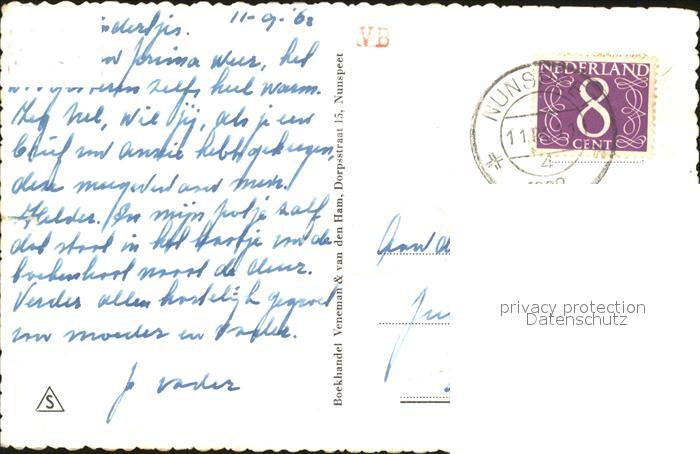 11-9-'68
prima weer, het
zelfs heel warm.
Zeg Nel, wil jij, als je een
brief van Annie hebt gekregen,
deze meegeven aan mevr.
Helder. En mijn potje zalf
dat staat in het kastje van de
boekenkast naast de deur.
Verder allen hartelijk gegroet
van moeder en vader.
vader
Boekhandel Veneman & van den Ham, Dorpsstraat 15, Nunspeet
S
VB
NUNSPE
11
4
NEDERLAND
8
CENT
Aan d
privacy protection
Datenschutz